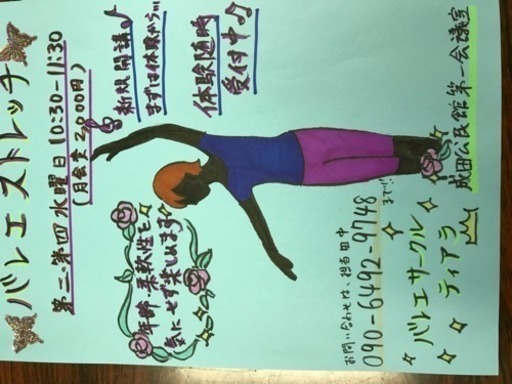 バレエストレッチ
第二・第四水曜日10:30-11:30
(月会費2,000円)
新規開講♪
まずは体験から…
体験随時
受付中♪♪
年齢・柔軟性を
気にせず楽しめます
お問い合わせは、担当田中
090-6492-9748
まで!!
バレエサークル
ティアラ
成田公民館第一会議室